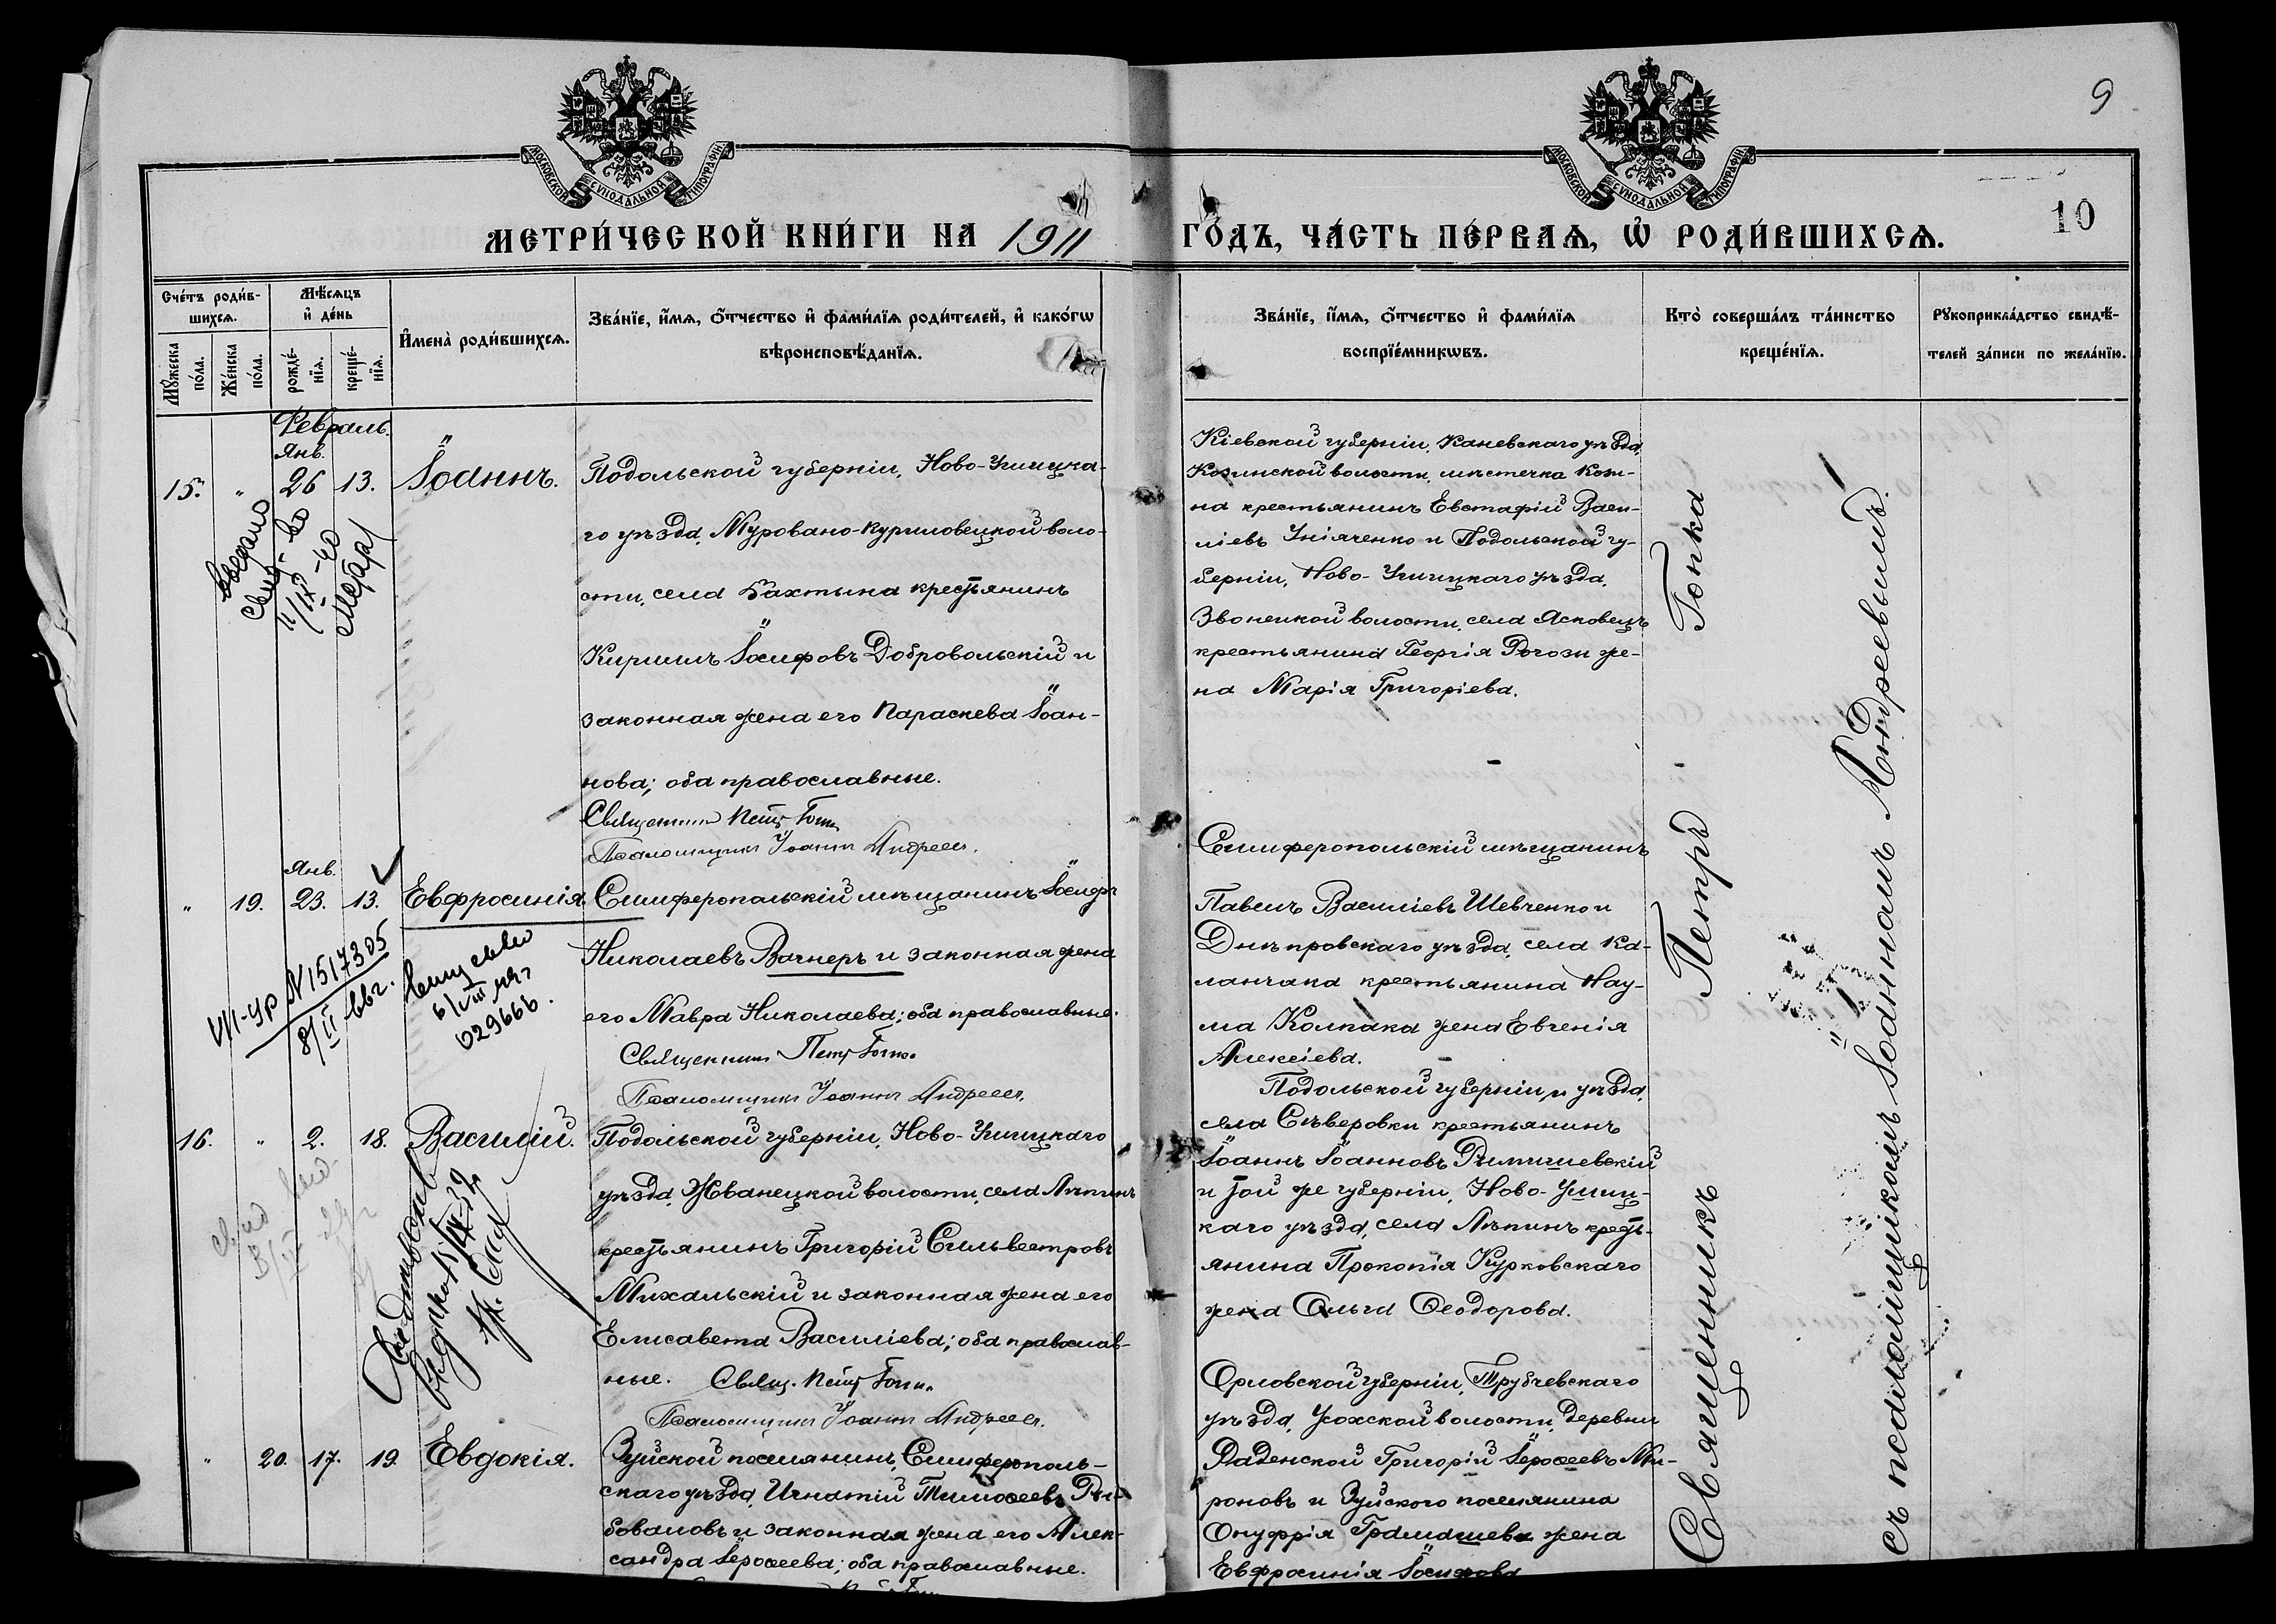 9
10
МОСКОВСКОЙ СУНОДАЛЬНОЙ ТИПОГРАФІИ
МОСКОВСКОЙ СУНОДАЛЬНОЙ ТИПОГРАФІИ
МЕТРИ́ЧЕСКОЙ КНИ́ГИ НА 1911
ГО́ДЪ, ЧА́СТЬ ПЕ́РВАѦ, Ѡ҆ РОДИ́ВШИХСѦ.
Сче́тъ роди́в-
шихсѧ.
Мꙋ́жеска
по́ла.
Же́нска
по́ла.
Мѣ́сѧцъ
и҆ де́нь
рожде́-
нїѧ.
креще́-
нїѧ.
И҆мена̀ роди́вшихсѧ.
Зва́нїе, и҆́мѧ, ѻ҆́тчество и҆ фами́лїѧ роди́телей, и҆ како́гѡ
вѣроисповѣ́данїѧ.
Зва́нїе, и҆́мѧ, ѻ҆́тчество и҆ фами́лїѧ
воспрїе́мникѡвъ.
Кто̀ соверша́лъ та́инство
креще́нїѧ.
Рꙋкоприкла́дство свидѣ́-
телей за́писи по жела́нїю.
Февраль.
Янв.
15. " 26 13. Іоаннъ.
Подольской губерніи, Ново-Ушицка-
го уѣзда, Муровано-Куриловецкой воло-
сти, села Бахтына крестьянинъ
Кириллъ Іосифовъ Добровольскій и
законная жена его Параскева Іоан-
нова; оба православные.
Священникъ Петръ Гопка
Псаломщикъ Іоаннъ Андреевъ.
Кіевской губерніи, Каневскаго уѣзда,
Козинской волости, мѣстечка Кози-
на крестьянинъ Евстафій Васи-
ліевъ Уніяченко и Подольской гу-
берніи, Ново-Ушицкаго уѣзда,
Звонецкой волости, села Ясковецъ
крестьянина Георгія Рогози же-
на Марія Григоріева.
11/IX-40
Янв.
" 19. 23. 13. Евфросинія.
Симферопольскій мѣщанинъ Іосифъ
Николаевъ Вагнеръ и законная жена
его Мавра Николаева; оба православные.
Священникъ Петръ Гопка
Псаломщикъ Іоаннъ Андреевъ.
Симферопольскій мѣщанинъ
Павелъ Василіевъ Шевченко и
Днѣпровскаго уѣзда, села Ка-
ланчака крестьянина Нау-
ма Колпака жена Евгенія
Алексіева.
N 1517305
8/II 66г.
6/VIII 49г
029666.
16. " 2. 18. Василій.
Подольской губерніи, Ново-Ушицкаго
уѣзда, Жванецкой волости, села Лѣпинъ
крестьянинъ Григорій Сильвестровъ
Михальскій и законная жена его
Елисавета Василіева; оба православ-
ные. Свящ. Петръ Гопка
Псаломщикъ Іоаннъ Андреевъ.
Подольской губерніи и уѣзда,
села Сѣверовки крестьянинъ
Іоаннъ Іоанновъ Римишевскій
и той же губерніи, Ново-Ушиц-
каго уѣзда, села Лѣпинъ кресть-
янина Прокопія Курковскаго
жена Ольга Ѳеодорова.
" 20. 17. 19. Евдокія.
Зуйской поселянинъ, Симферополь-
скаго уѣзда, Игнатій Тимоѳеевъ Ри-
боваловъ и законная жена его Алек-
сандра Іероѳеева; оба православные.
Орловской губерніи, Трубчевскаго
уѣзда, Усохской волости, деревни
Раденской Григорій Іероѳеевъ Ми-
роновъ и Зуйского поселянина
Онуфрія Грамашева жена
Евфросинія Іосифова
Священникъ Петръ Гопка
съ псаломщикомъ Іоанномъ Андреевымъ.